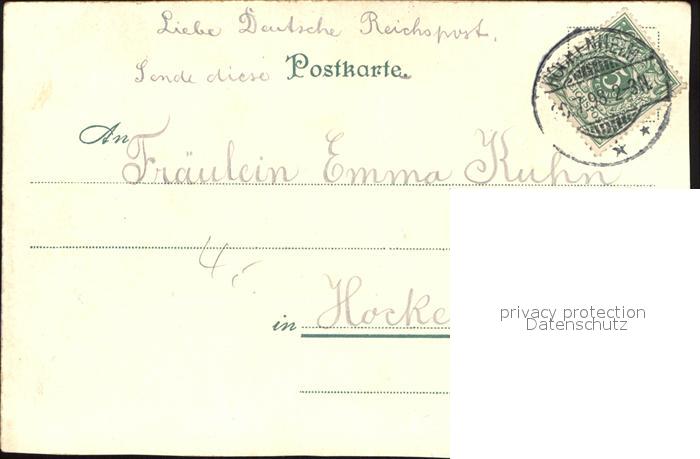 Liebe Deutsche Reichspost,
Sende diese Postkarte.
An Fräulein Emma Kuhn
4
in Hocke
privacy protection
Datenschutz